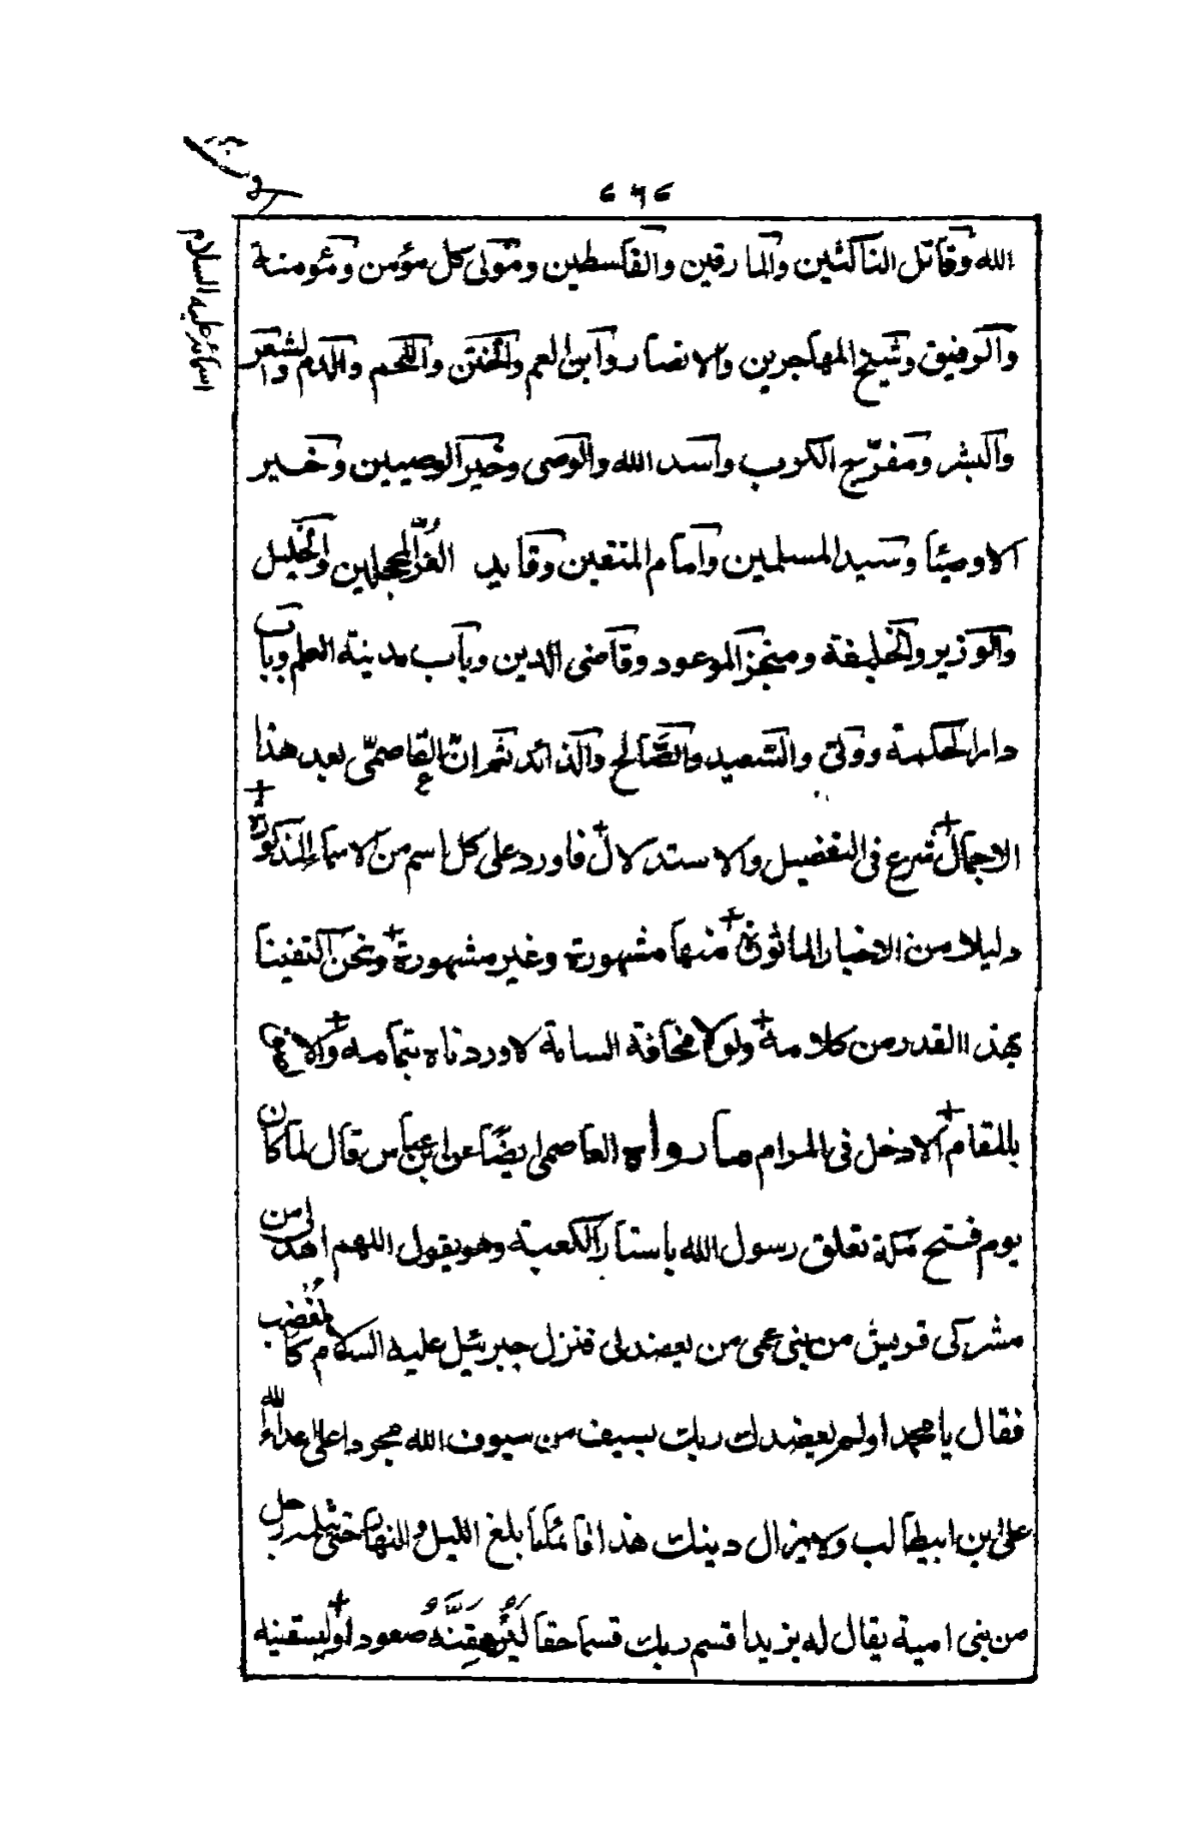 الله وقاتل الناكثين والمارقين والقاسطين ومولى كل مؤمن ومؤمنة
والرفيق وشيخ المهاجرين والانصار وابن العم والختن واللحم والدم والشعر
والبشر ومفرّج الكرب واسد الله والوصى وخير الوصيين وخير
الاوصيا وسيد المسلمين وامام المتقين وقايد الغُرّ المحجلين والخليل
والوزير والخليفة ومنجز الموعود وقاضى الدين وباب مدينة العلم وباب
دار الحكمة وولى والشهيد والصَّالح والذائد ثم انّ العاصمىّ بعد هذا
الاجمال شرع فى التفضيل والاستدلال فاورد على كل اسم من الاسماء المذكورة
دليلا من الاخبار الماثورة منها مشهورة وغير مشهورة ونحن اكتفينا
بهذا القدر من كلامه ولولا مخافة السامة لاوردناه بتمامه والا
بالمقام الادخل فى المرام ما رواه العاصمى ايضًا عن ابن عباس قال لما كان
يوم فتح مكة تعلق رسول الله باستار الكعبة وهو يقول اللهم اهد لى من
مشركى قريش من بنى عمى من يعضدلى فنزل جبرئيل عليه السلام كالمُغْضِب
فقال يا محمد اولم يعضدك ربك بسيف من سيوف الله مجردا على اعداء الله
على بن ابيطالب ولا يزال دينك هذا قائما بلغ الليل والنهار حتى يثلمه رجل
من بنى امية يقال له يزيد اقسم ربك قسما حقا لَيُرْهِقَنَّهُ صعودا وليسقينه
اسمائه عليه السلام